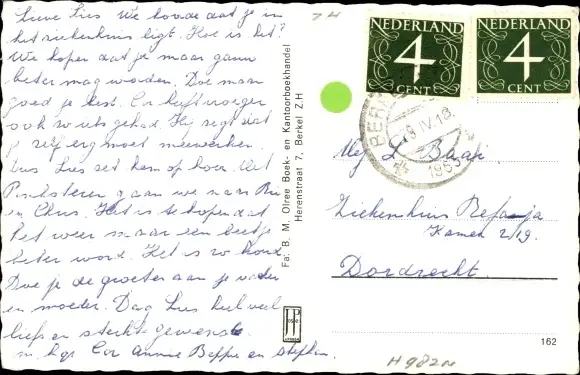 Lieve Lies We hoorde dat je in
het ziekenhuis ligt. Hoe is het?
We hopen dat je maar gauw
beter mag worden. Doe maar
goed je best. Cor heeft vroeger
ook zo iets gehad. Hij zegt dat
je zelf erg moet meewerken.
dus Lies zet hem op hoor. Met
Pinksteren gaan we naar
en Chris. Het is te hopen dat
het weer maar een beetje
beter word. Het is zo koud
Doe je de groeten aan je vader
en moeder. Dag Lies heel veel
liefs en sterkte gewenst
m. hgr Cor Annie Beppie en Stephan.
Fa. B. M. Olree Boek- en Kantoorboekhandel
Herenstraat 7, Berkel Z.H
JP
ZH
NEDERLAND
4
CENT
NEDERLAND
4
CENT
BERK
18.IV.18
1963
Mej L.
Ziekenhuis Refaja
Kamer 219.
Dordrecht.
162
H982n